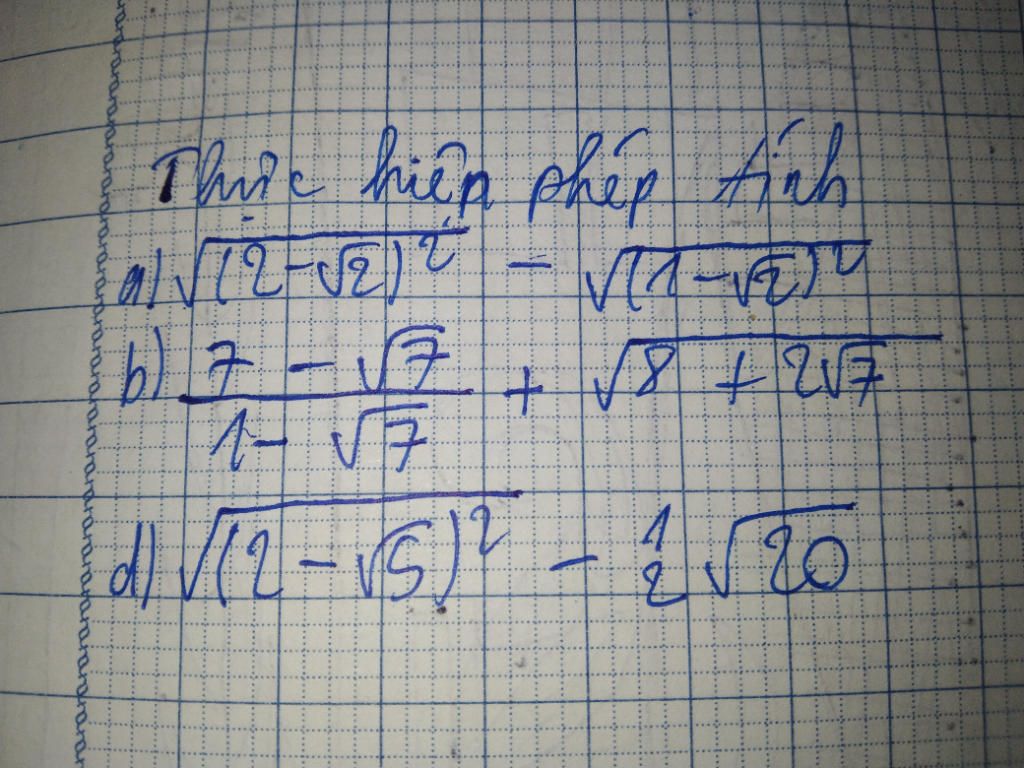 Thực hiện phép tính
a) √((2-√2)²) - √((1-√2)²)
b) (7 - √7)/(1 - √7) + √(8 + 2√7)
d) √((2-√5)²) - 1/2 √20